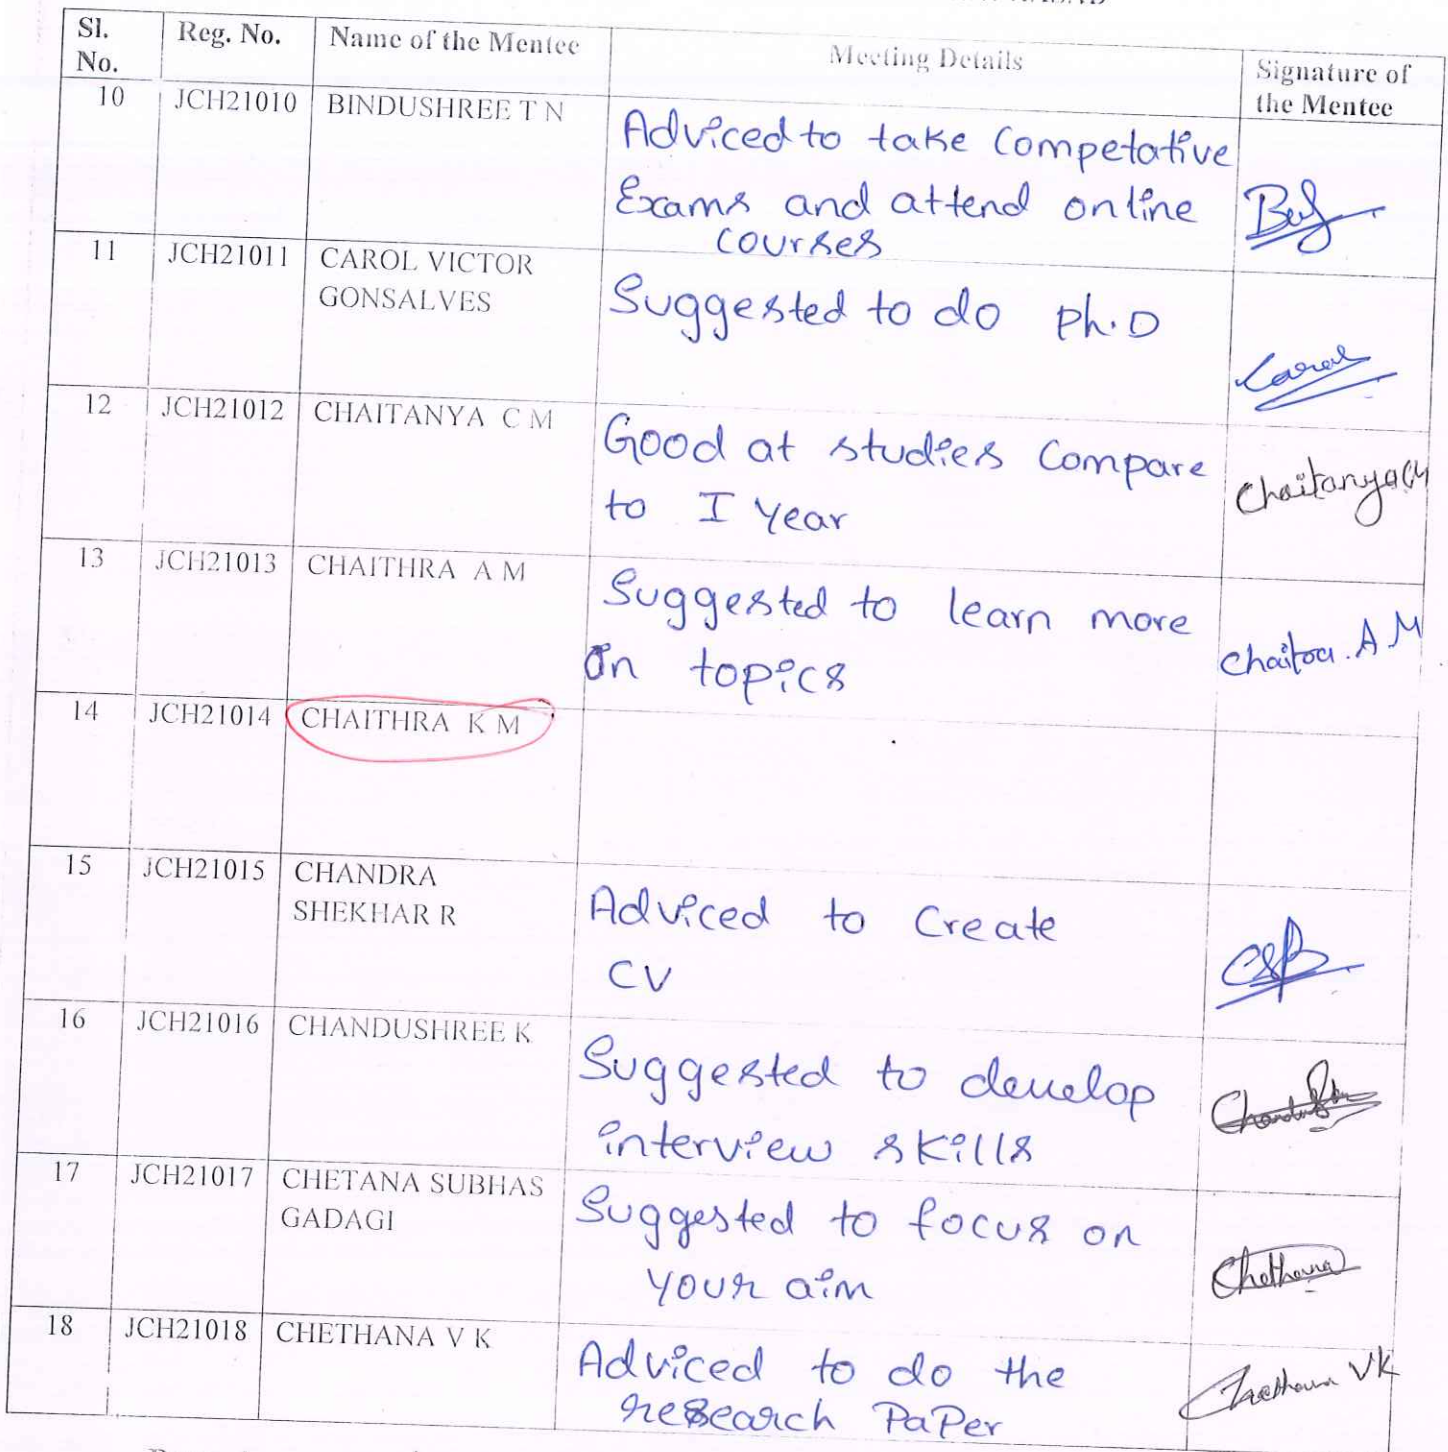 Sl. No. Reg. No. Name of the Mentee Meeting Details Signature of the Mentee
10 JCH21010 BINDUSHREE T N
Adviced to take Competative
Exams and attend online
courses
11 JCH21011 CAROL VICTOR
GONSALVES
Suggested to do Ph.D
Carol
12 JCH21012 CHAITANYA C M
Good at studies Compare
to I Year
Chaitanya CM
13 JCH21013 CHAITHRA A M
Suggested to learn more
On topics
Chaitra. A M
14 JCH21014 CHAITHRA K M
15 JCH21015 CHANDRA
SHEKHAR R
Adviced to Create
CV
16 JCH21016 CHANDUSHREE K
Suggested to develop
interview skills
17 JCH21017 CHETANA SUBHAS
GADAGI
Suggested to focus on
your aim
Chethana
18 JCH21018 CHETHANA V K
Adviced to do the
research PaPer
Chethana VK